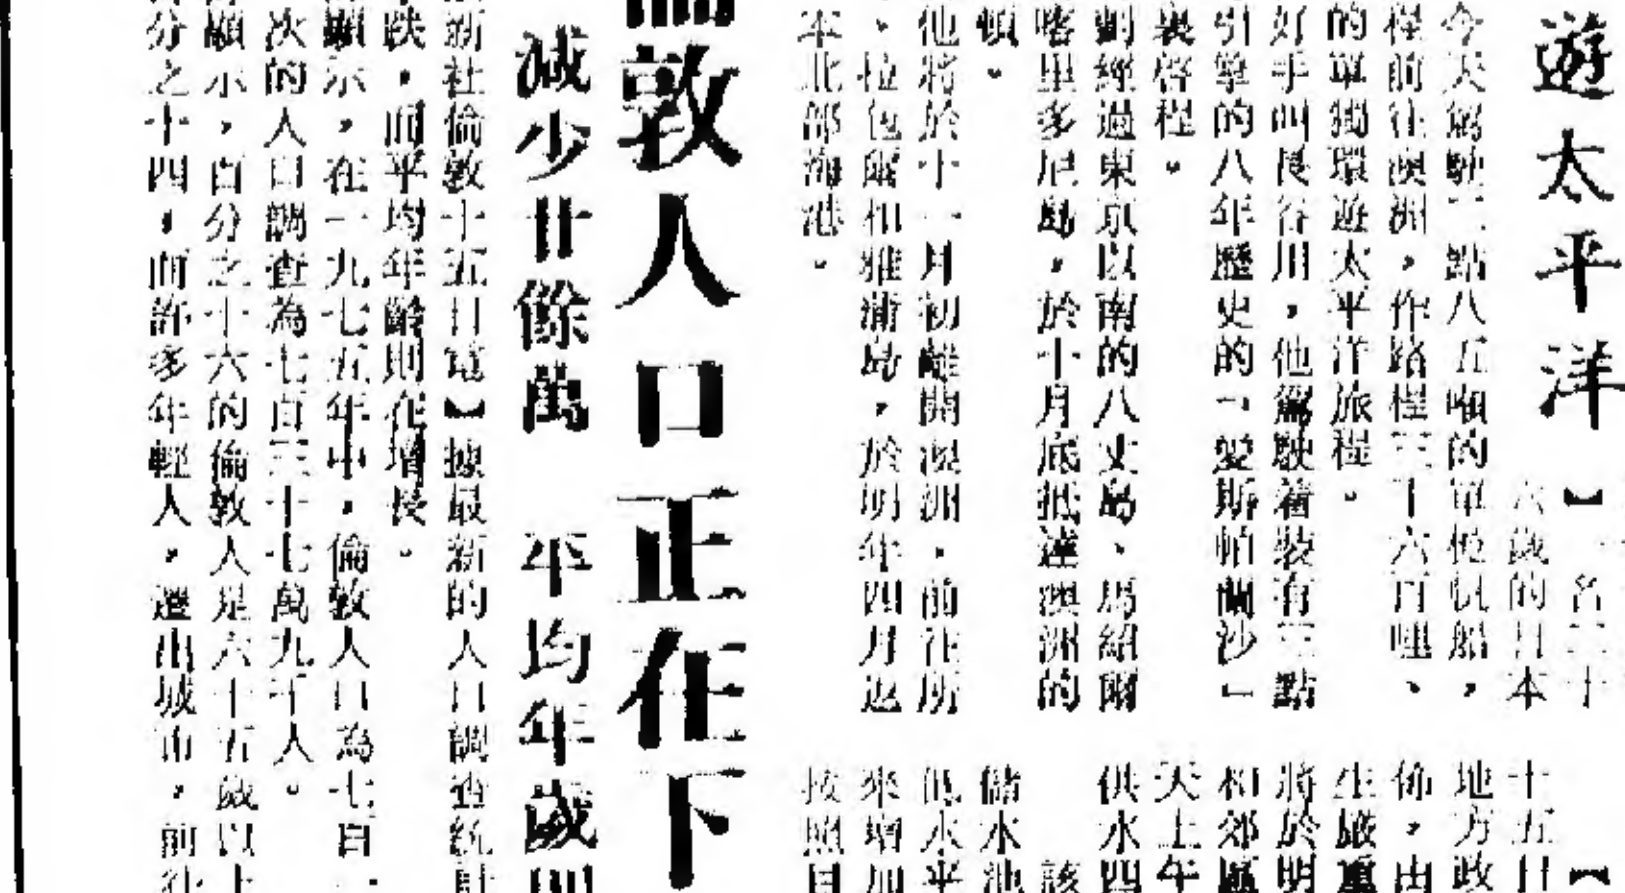 遊太平洋】
一名三十
六歲的日本
今天駕駛二點八五噸的單桅帆船，
程前往澳洲，作路程三千六百哩、
的單獨環遊太平洋旅程。
好手叫長谷川，他駕駛着裝有三點
引擎的八年歷史的「愛斯帕蘭沙」
裏啓程。
劃經過東京以南的八丈島、馬紹爾
喀里多尼島，於十月底抵達澳洲的
頓。
他將於十一月初離開澳洲，前往所
、拉包爾和雅浦島，於明年四月返
本北部海港。
十五日【
地方政
佈，由
生嚴重
將於明
和郊區
天上午
供水四
該
儲水池
低水平
來增加
按照目
倫敦人口正在下
減少廿餘萬　平均年歲則
新社倫敦十五日電】據最新的人口調查統計
跌，而平均年齡則在增長。
顯示，在一九七五年中，倫敦人口為七百一
次的人口調查為七百三十七萬九千人。
顯示，百分之十六的倫敦人是六十五歲以上
分之十四，而許多年輕人，遷出城市，前往